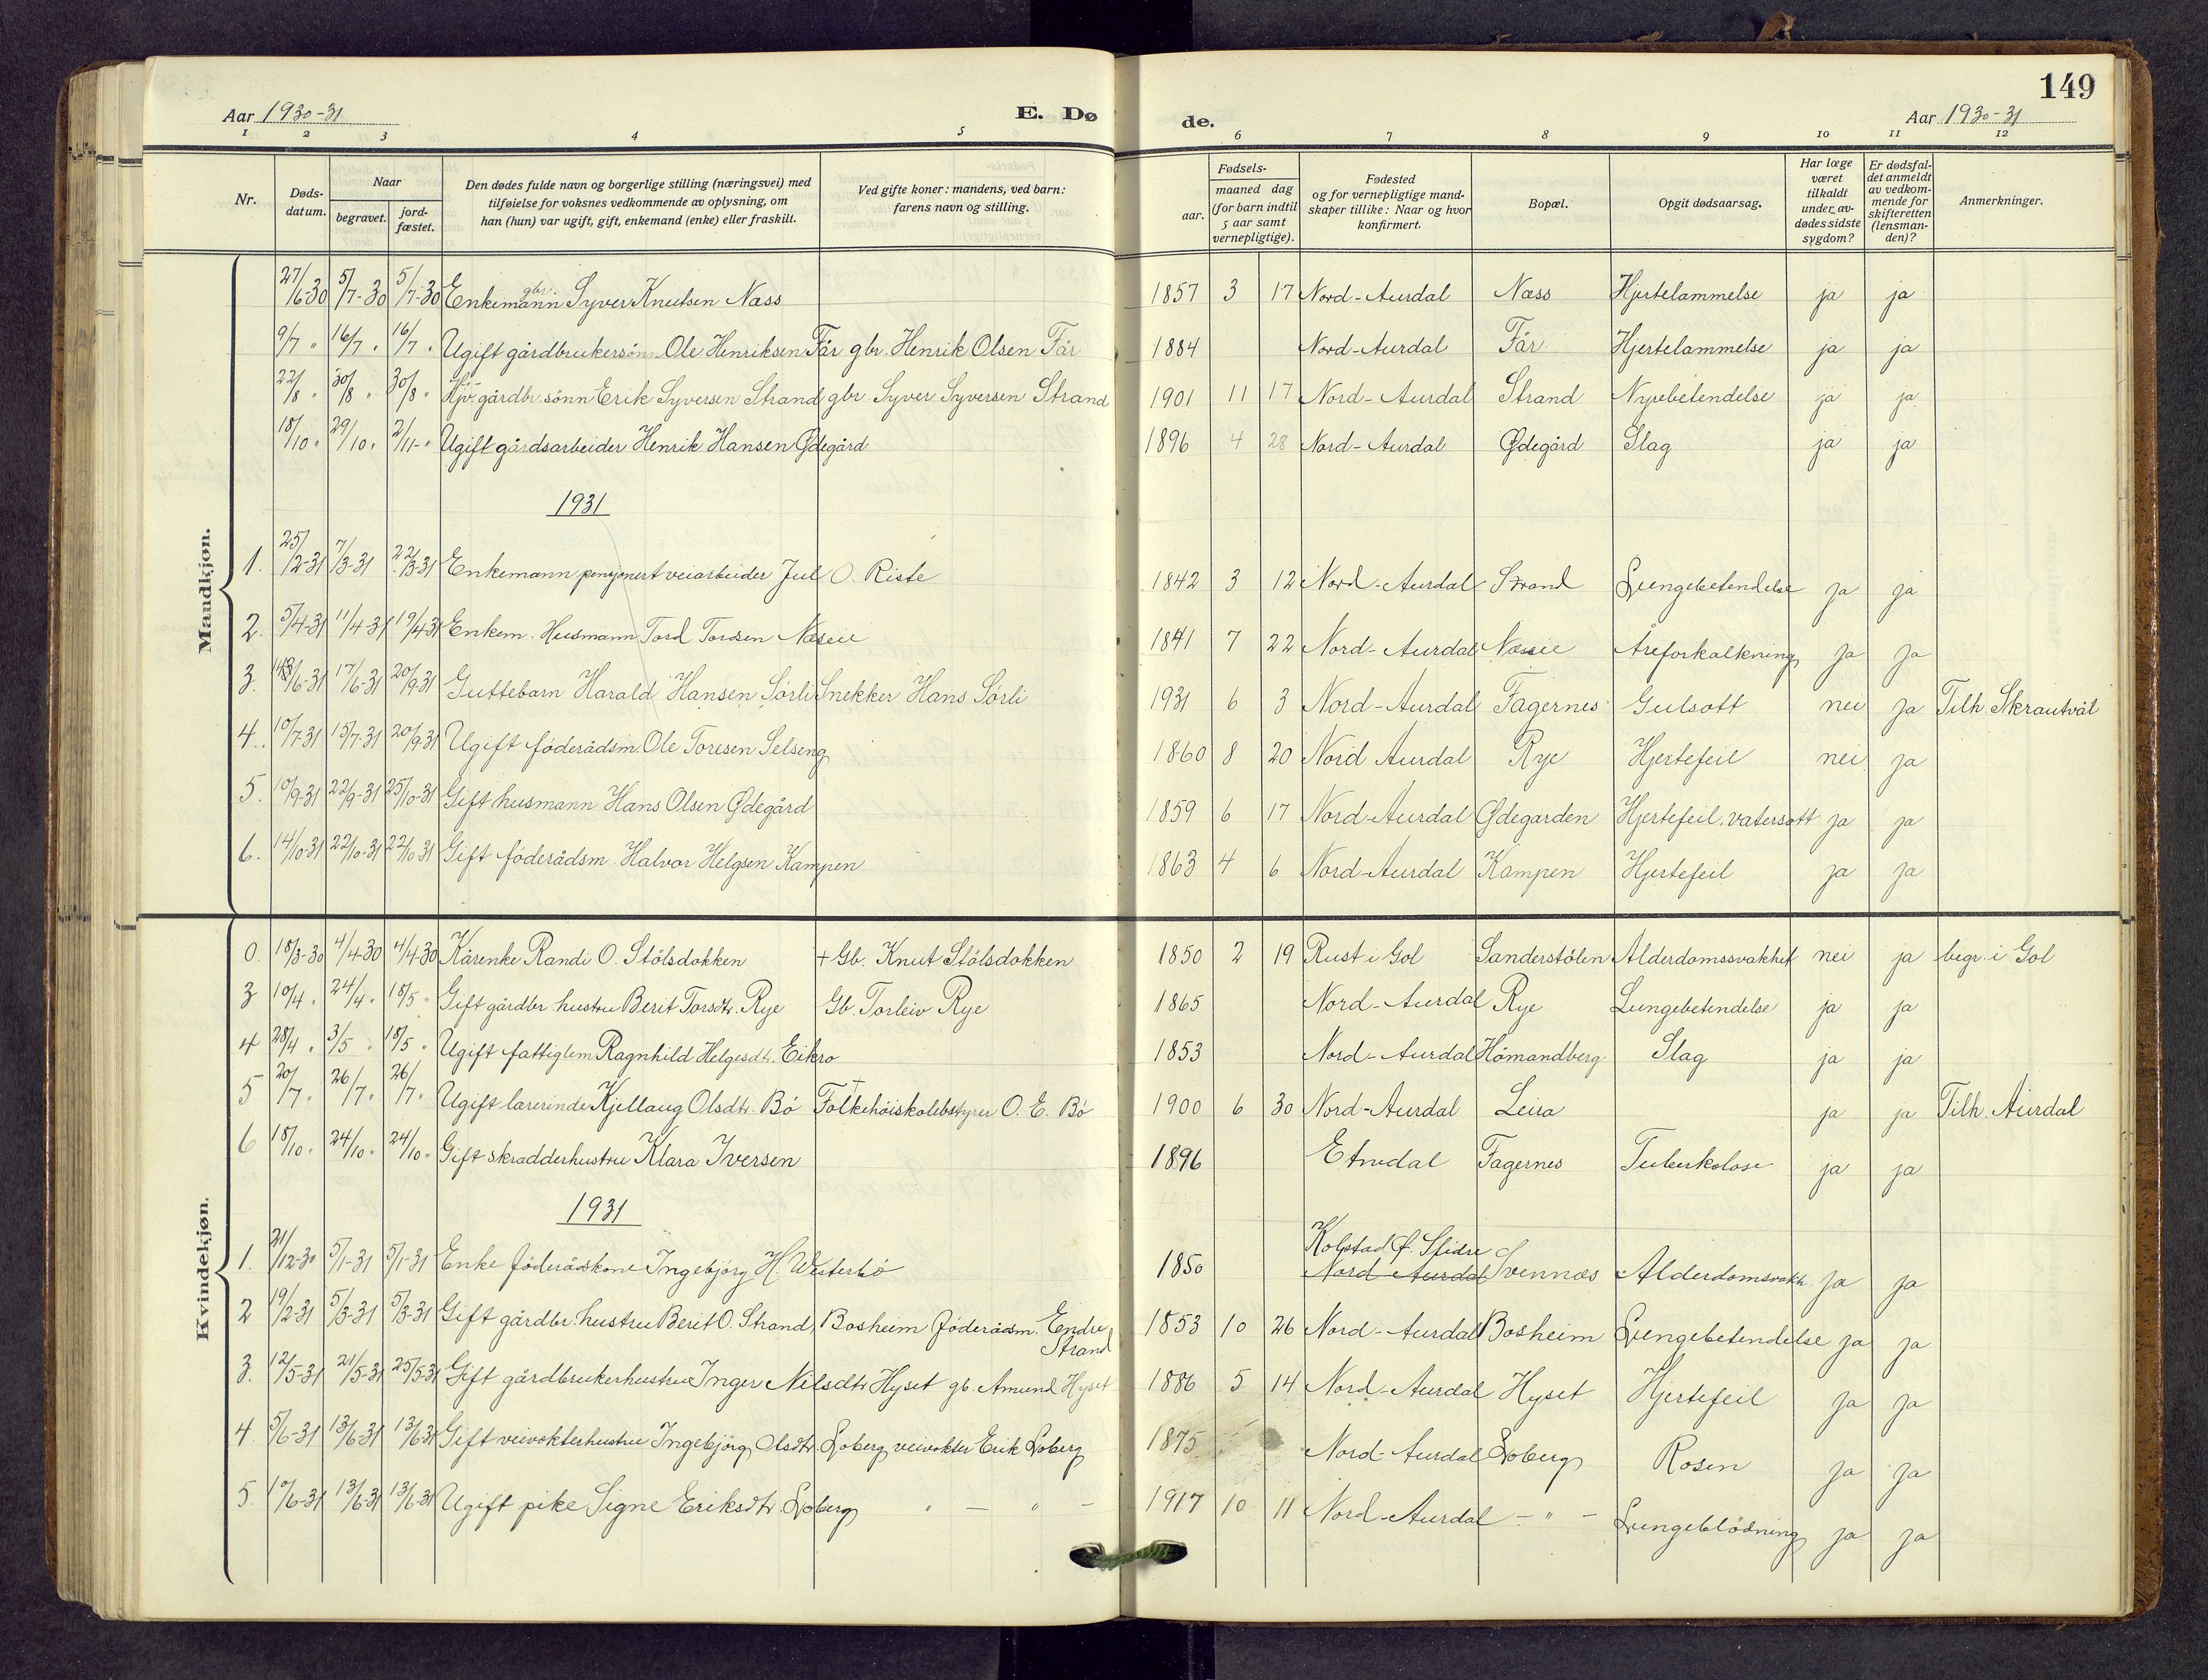 149
Aar 1930-31 E. Dø de. Aar 1930-31
1 2 3 4 5 6 7 8 9 10 11 12
Nr. Døds-datum. Naar begravet. jord-fæstet. Den dødes fulde navn og borgerlige stilling (næringsvei) med tilføielse for voksnes vedkommende av oplysning, om han (hun) var ugift, gift, enkemand (enke) eller fraskilt. Ved gifte koner: mandens, ved barn: farens navn og stilling. Fødsels- aar. maaned dag (for barn indtil 5 aar samt vernepligtige). Fødested og for vernepligtige mand-skaper tillike: Naar og hvor konfirmert. Bopæl. Opgit dødsaarsag. Har læge været tilkaldt under av-dødes sidste sygdom? Er dødsfal-det anmeldt av vedkom-mende for skifteretten (lensman-den)? Anmerkninger.
Mandkjøn.
27/6-30 5/7-30 5/7-30 Enkemann gbr. Syver Knutsen Næss 1857 3 17 Nord-Aurdal Næss Hjertelammelse ja ja
9/7 " 16/7 " 16/7 " Ugift gårdbrukersønn Ole Henriksen Får gbr. Henrik Olsen Får 1884 Nord-Aurdal Får Hjertelammelse ja ja
22/8 " 30/8 " 30/8 " gårdbr. sønn Erik Syversen Strand gbr. Syver Syversen Strand 1901 11 17 Nord-Aurdal Strand Nyrebetendelse ja ja
18/10 " 29/10 " 2/11 - " Ugift gårdsarbeider Henrik Hansen Ødegård 1896 4 28 Nord-Aurdal Ødegård Slag ja ja
1931
1. 25/2-31 7/3-31 22/3-31 Enkemann pensjonert veiarbeider Jul O. Riste 1842 3 12 Nord-Aurdal Strand Lungebetendelse ja ja
2. 5/4-31 11/4-31 19/4-31 Enkem. Husmann Tord Tordsen Næseie 1841 7 22 Nord-Aurdal Næseie Åreforkalkning ja ja
3. 6-31 17/6-31 20/9-31 Guttebarn Harald Hansen Sørli Snekker Hans Sørli 1931 6 3 Nord-Aurdal Fagernes Gulsott nei ja Tilh. Skrautvål
4. 10/7-31 15/7-31 20/9-31 Ugift föderådsm. Ole Toresen Selseng 1860 8 20 Nord Aurdal Rye Hjertefeil nei ja
5. 10/9-31 22/9-31 25/10-31 Gift husmann Hans Olsen Ødegård 1859 6 17 Nord-Aurdal Ødegarden Hjertefeil, vatersott ja ja
6. 14/10-31 22/10-31 22/10-31 Gift föderådsm. Halvor Helgsen Kampen 1863 4 6 Nord-Aurdal Kampen Hjertefeil ja ja
Kvindekjøn.
0. 18/3-30 4/4-30 4/4-30 Kårenke Randi O. Stölsdokken + Gb. Knut Stölsdokken 1850 2 19 Rust i Gol Sanderstölen Alderdomssvakhet nei ja begr. i Gol
3 10/4 " 24/4 " 18/5 " Gift gårdbr. hustru Berit Torsdtr. Rye Gb. Torleiv Rye 1865 Nord-Aurdal Rye Lungebetendelse ja ja
4 28/4 " 3/5 " 18/5 " Ugift fattiglem Ragnhild Helgesdtr. Eikro 1853 Nord-Aurdal Hömandberg Slag ja ja
5 20/7 " 26/7 " 26/7 " Ugift lærerinde Kjellaug Olsdtr. Bö + Folkehöiskolebstyrer O. E. Bö 1900 6 30 Nord-Aurdal Leira ja ja Tilh. Aurdal
6 18/10 " 24/10 " 24/10 " Gift skrædderhustru Klara Iversen 1896 Etnedal Fagernes Tuberkolose ja ja
1931
1. 21/12-30 5/1-31 5/1-31 Enke föderådskone Ingebjörg H. Westerbö 1850 Kolstad Ö. Slidre Nord Aurdal Svennæs Alderdomsvakh. ja ja
2 19/2-31 5/3-31 5/3-31 Gift gårdbr. hustru Berit O. Strand, Bosheim föderådsm. Endre Strand 1853 10 26 Nord-Aurdal Bosheim Lungebetendelse ja ja
3. 12/5-31 21/5-31 25/5-31 Gift gårdbrukerhustru Inger Nilsdtr Hyset gb. Amund Hyset 1886 5 14 Nord-Aurdal Hyset Hjertefeil ja ja
4. 5/6-31 13/6-31 13/6-31 Gift veivokterhustru Ingebjörg Olsdtr. Loberg veivokter Erik Loberg 1875 Nord-Aurdal Loberg Rosen ja ja
5. 10/6-31 13/6-31 13/6-31 Ugift pike Signe Eriksdtr. Loberg " — " — 1917 10 11 Nord-Aurdal - " - Lungeblödning ja ja